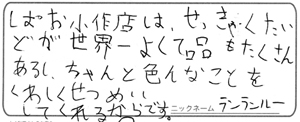 しばお小作店は、せっきゃくたい
どが世界一よくて品もたくさん
あるし、ちゃんと色んなことを
くわしくせつめい
してくれるからです。
ニックネーム ランランルー